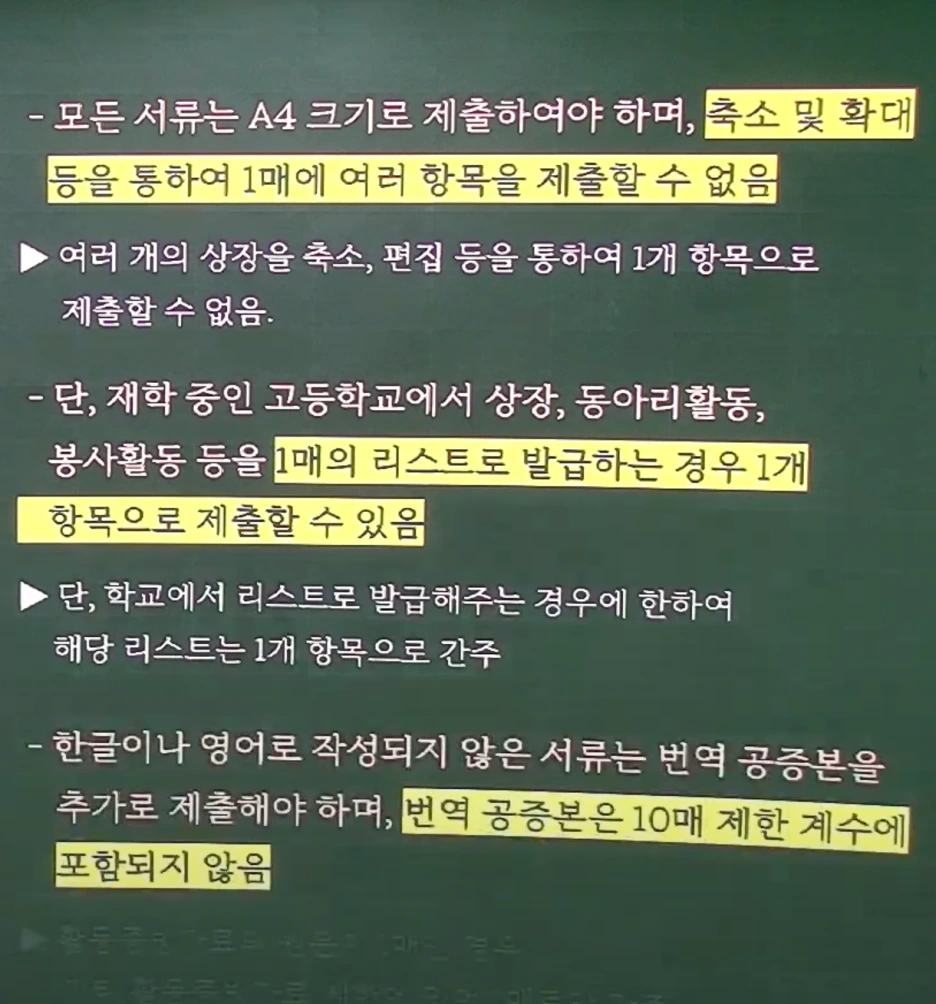 - 모든 서류는 A4 크기로 제출하여야 하며, 축소 및 확대
등을 통하여 1매에 여러 항목을 제출할 수 없음
▶ 여러 개의 상장을 축소, 편집 등을 통하여 1개 항목으로
제출할 수 없음.
- 단, 재학 중인 고등학교에서 상장, 동아리활동,
봉사활동 등을 1매의 리스트로 발급하는 경우 1개
항목으로 제출할 수 있음
▶ 단, 학교에서 리스트로 발급해주는 경우에 한하여
해당 리스트는 1개 항목으로 간주
- 한글이나 영어로 작성되지 않은 서류는 번역 공증본을
추가로 제출해야 하며, 번역 공증본은 10매 제한 계수에
포함되지 않음